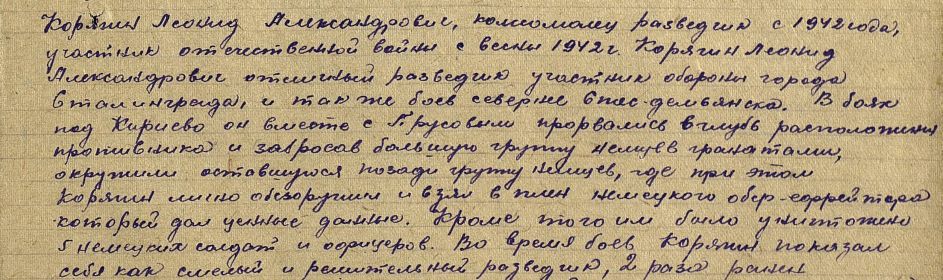 Корягин Леонид Александрович, комсомолец разведчик с 1942 года,
участник отечественной войны с весны 1942 г. Корягин Леонид
Александрович отличный разведчик участник обороны города
Сталинграда, и так же боев севернее Спас-демьянска. В боях
под он вместе с Трусовым прорвались вглубь расположения
противника и забросав большую группу немцев гранатами,
окружили оставшуюся позади группу немцев, где при этом
Корягин лично обезоружил и взял в плен немецкого обер-ефрейтора
который дал ценные данные. Кроме того им было уничтожено
5 немецких солдат и офицеров. Во время боев Корягин показал
себя как смелый и решительный разведчик, 2 раза ранен